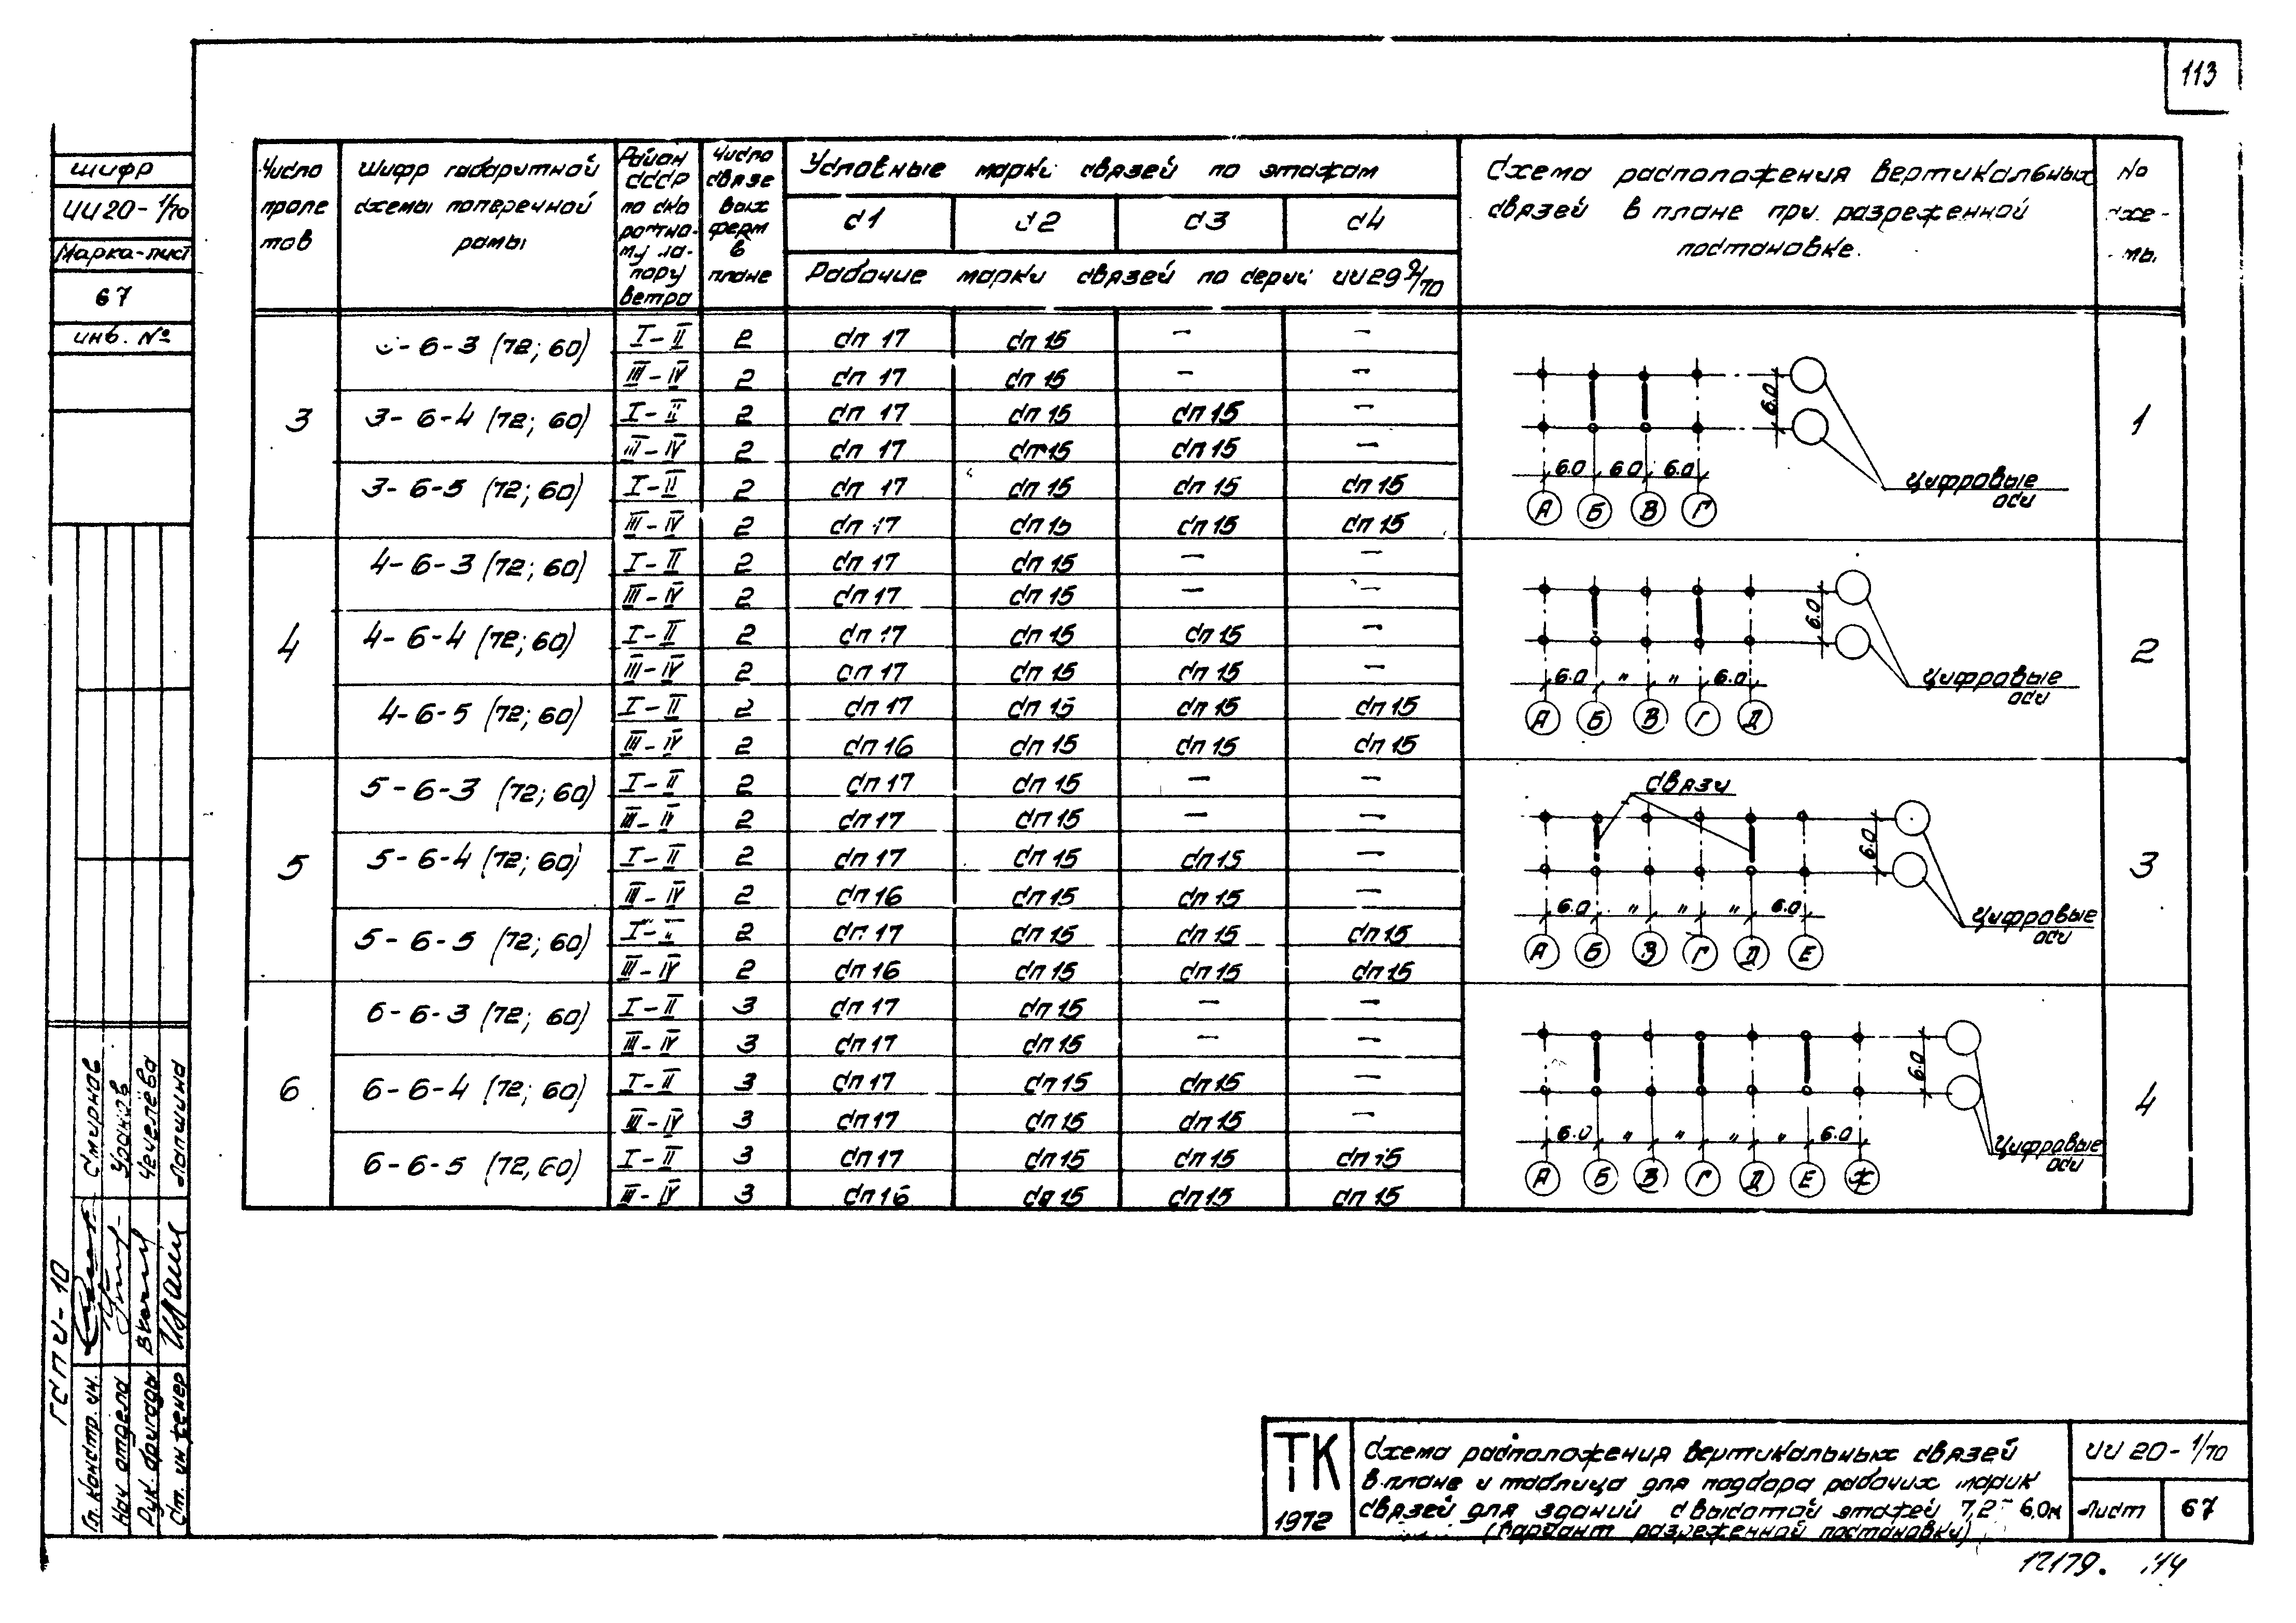 113
шифр
ИИ20-1/70
Марка-лист
67
инв. №
Число пролетов
Шифр габаритной схемы поперечной рамы
Район СССР по скоростному напору ветра
Число связевых ферм в плане
Условные марки связей по этажам
С1 С2 С3 С4
Рабочие марки связей по серии ИИ29
Схема расположения вертикальных
связей в плане при разреженной
постановке.
№ схемы
3
-6-3 (72; 60) I-II 2 СП 17 СП 15 – –
III-IV 2 СП 17 СП 15 – –
3-6-4 (72; 60) I-II 2 СП 17 СП 15 СП 15 –
III-IV 2 СП 17 СП 15 СП 15 –
3-6-5 (72; 60) I-II 2 СП 17 СП 15 СП 15 СП 15
III-IV 2 СП 17 СП 15 СП 15 СП 15
6.0
6.0 6.0 6.0
А Б В Г
Цифровые
оси
1
4
4-6-3 (72; 60) I-II 2 СП 17 СП 15 – –
III-IV 2 СП 17 СП 15 – –
4-6-4 (72; 60) I-II 2 СП 17 СП 15 СП 15 –
III-IV 2 СП 17 СП 15 СП 15 –
4-6-5 (72; 60) I-II 2 СП 17 СП 15 СП 15 СП 15
III-IV 2 СП 16 СП 15 СП 15 СП 15
6.0
6.0 " " 6.0
А Б В Г Д
Цифровые
оси
2
5
5-6-3 (72; 60) I-II 2 СП 17 СП 15 – –
III-IV 2 СП 17 СП 15 – –
5-6-4 (72; 60) I-II 2 СП 17 СП 15 СП 15 –
III-IV 2 СП 16 СП 15 СП 15 –
5-6-5 (72; 60) I-II 2 СП 17 СП 15 СП 15 СП 15
III-IV 2 СП 16 СП 15 СП 15 СП 15
связи
6.0
6.0 " " " 6.0
А Б В Г Д Е
Цифровые
оси
3
6
6-6-3 (72; 60) I-II 3 СП 17 СП 15 – –
III-IV 3 СП 17 СП 15 – –
6-6-4 (72; 60) I-II 3 СП 17 СП 15 СП 15 –
III-IV 3 СП 17 СП 15 СП 15 –
6-6-5 (72, 60) I-II 3 СП 17 СП 15 СП 15 СП 15
III-IV 3 СП 16 СП 15 СП 15 СП 15
6.0
6.0 " " " " 6.0
А Б В Г Д Е Ж
Цифровые
оси
4
ГСПИ-10
Гл. констр. ин. Смирнов
Нач. отдела
Рук. бригады Чечелёва
Ст. инженер Лапшина
ТК
1972
Схема расположения вертикальных связей
в плане и таблица для подбора рабочих марок
связей для зданий с высотой этажей 7,2 6,0м
(вариант разреженной постановки)
ИИ 20-1/70
Лист 67
12179.